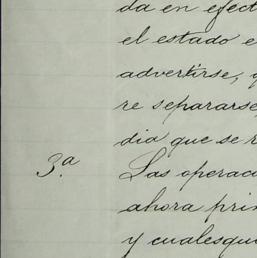 da en efect
el estado e
advertirse, y
re separarse,
dia que se r
3.ª Las operaci
ahora prin
y cualesqui